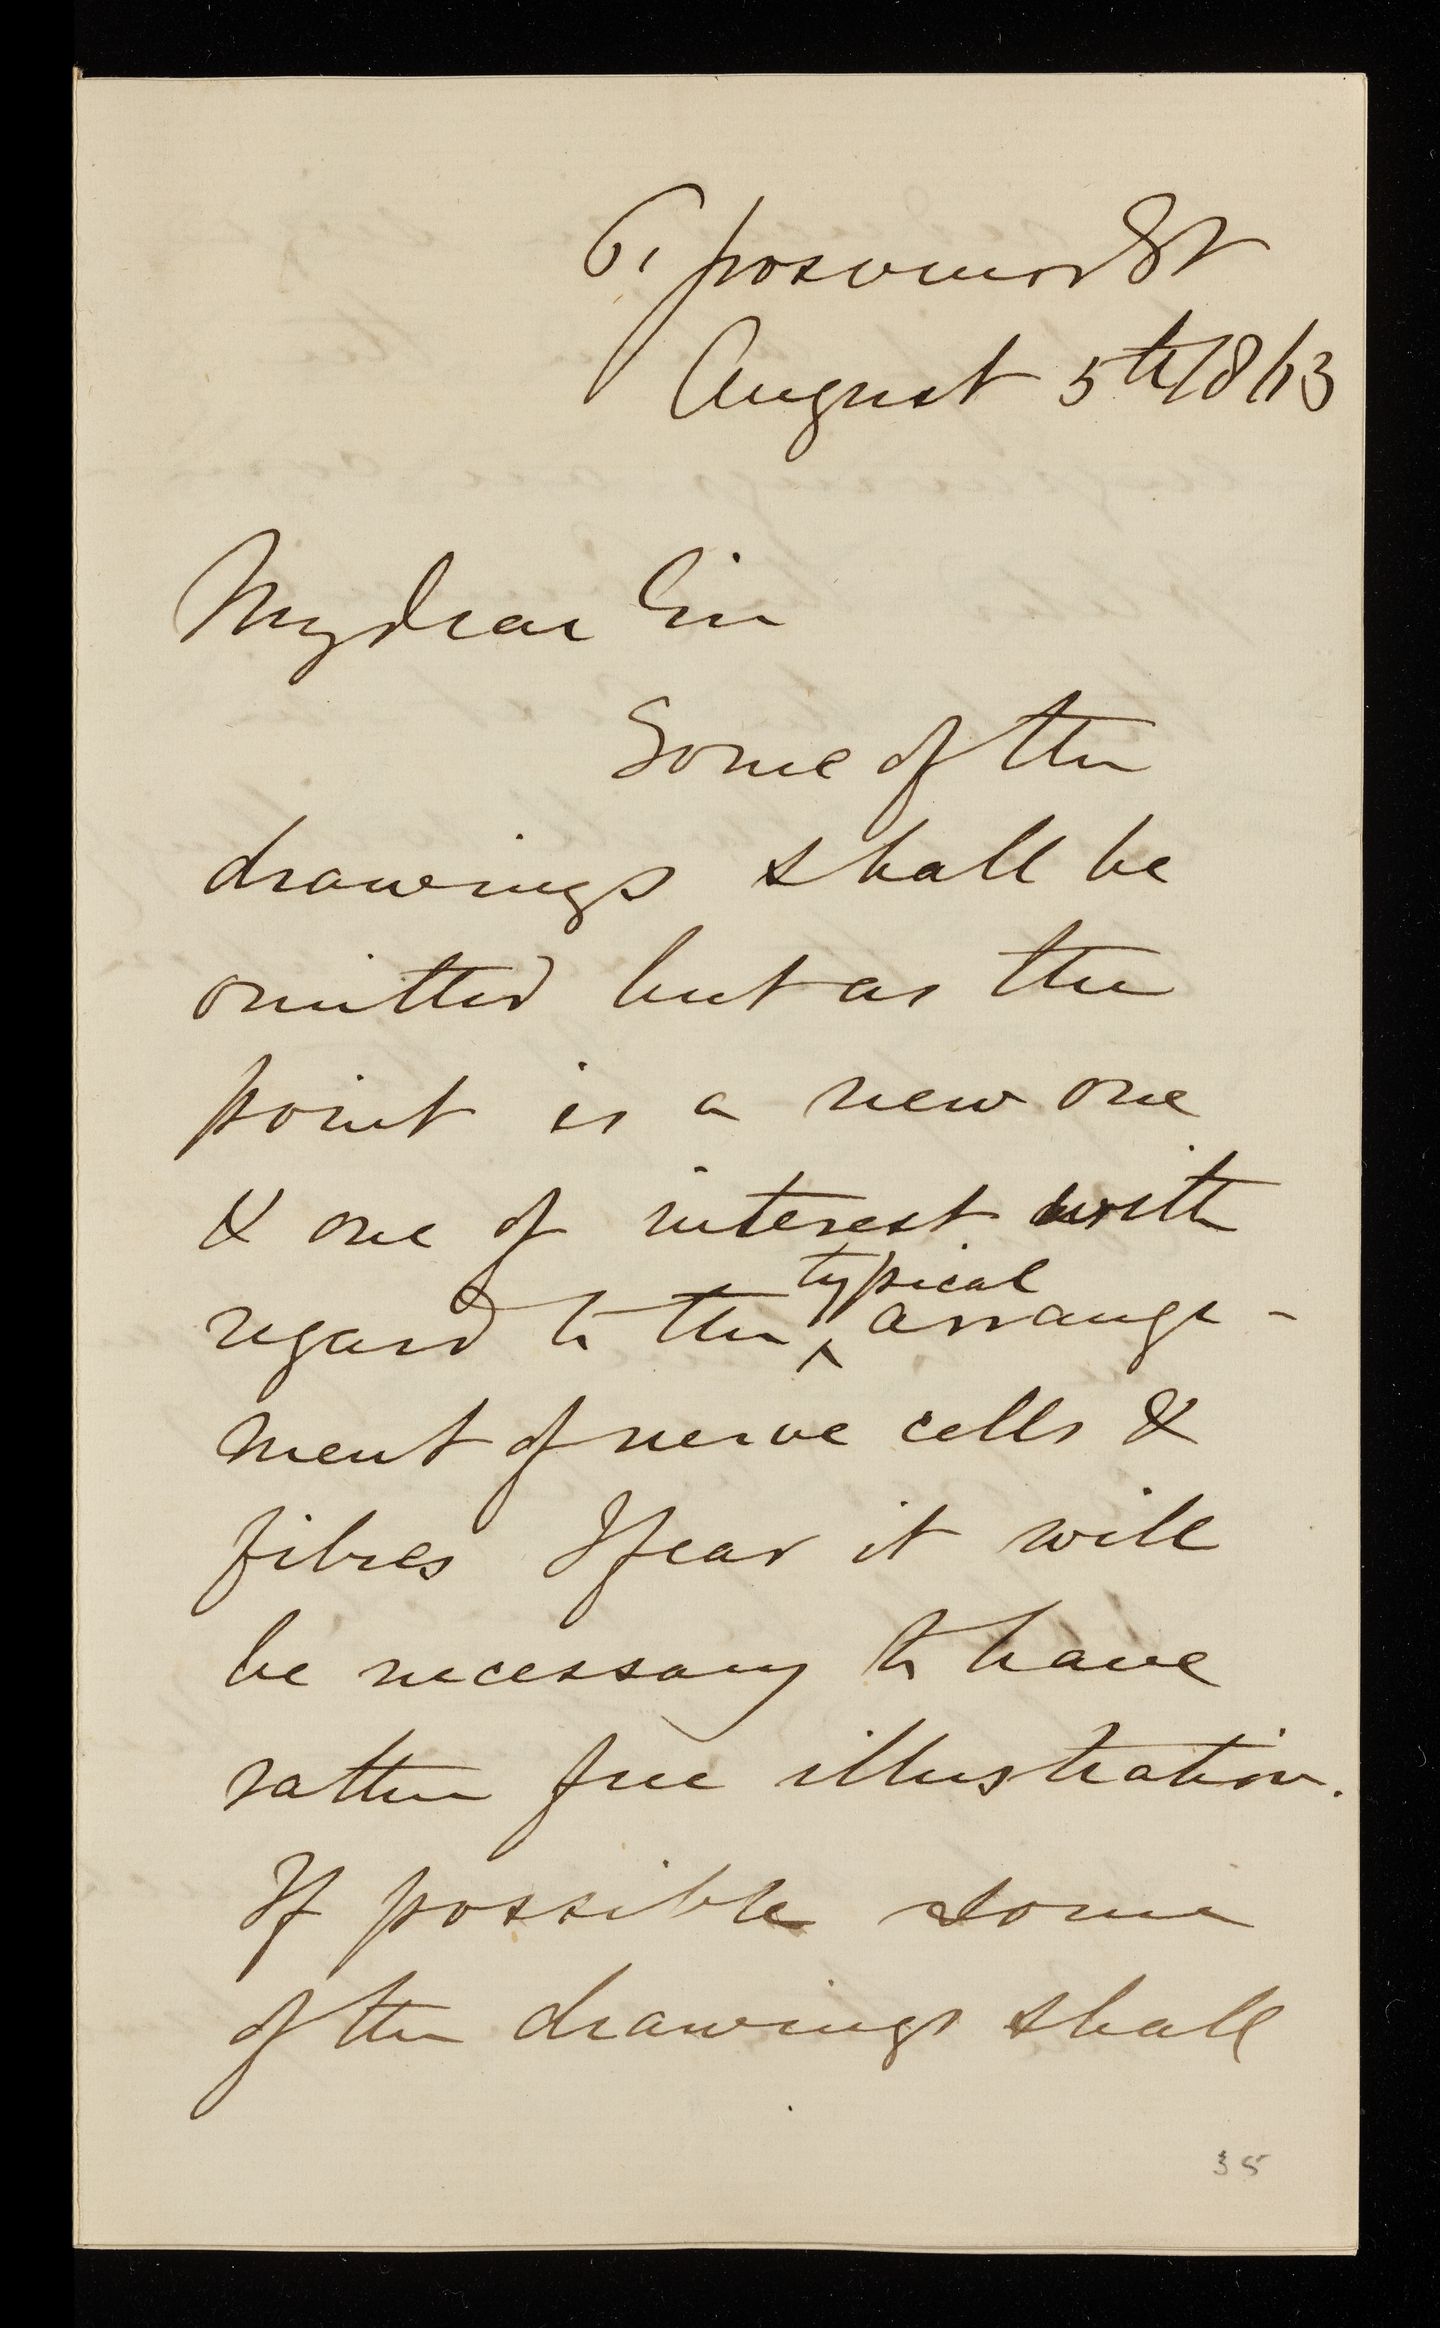 61 Grosvenor St
August 5th/63
My dear Sir
Some of the
drawings shall be
omitted but as the
point is a new one
& one of interest with
regard to the typical arrange-
ment of nerve cells &
fibres I fear it will
be necessary to have
rather free illustration.
If possible some
of the drawings shall
35